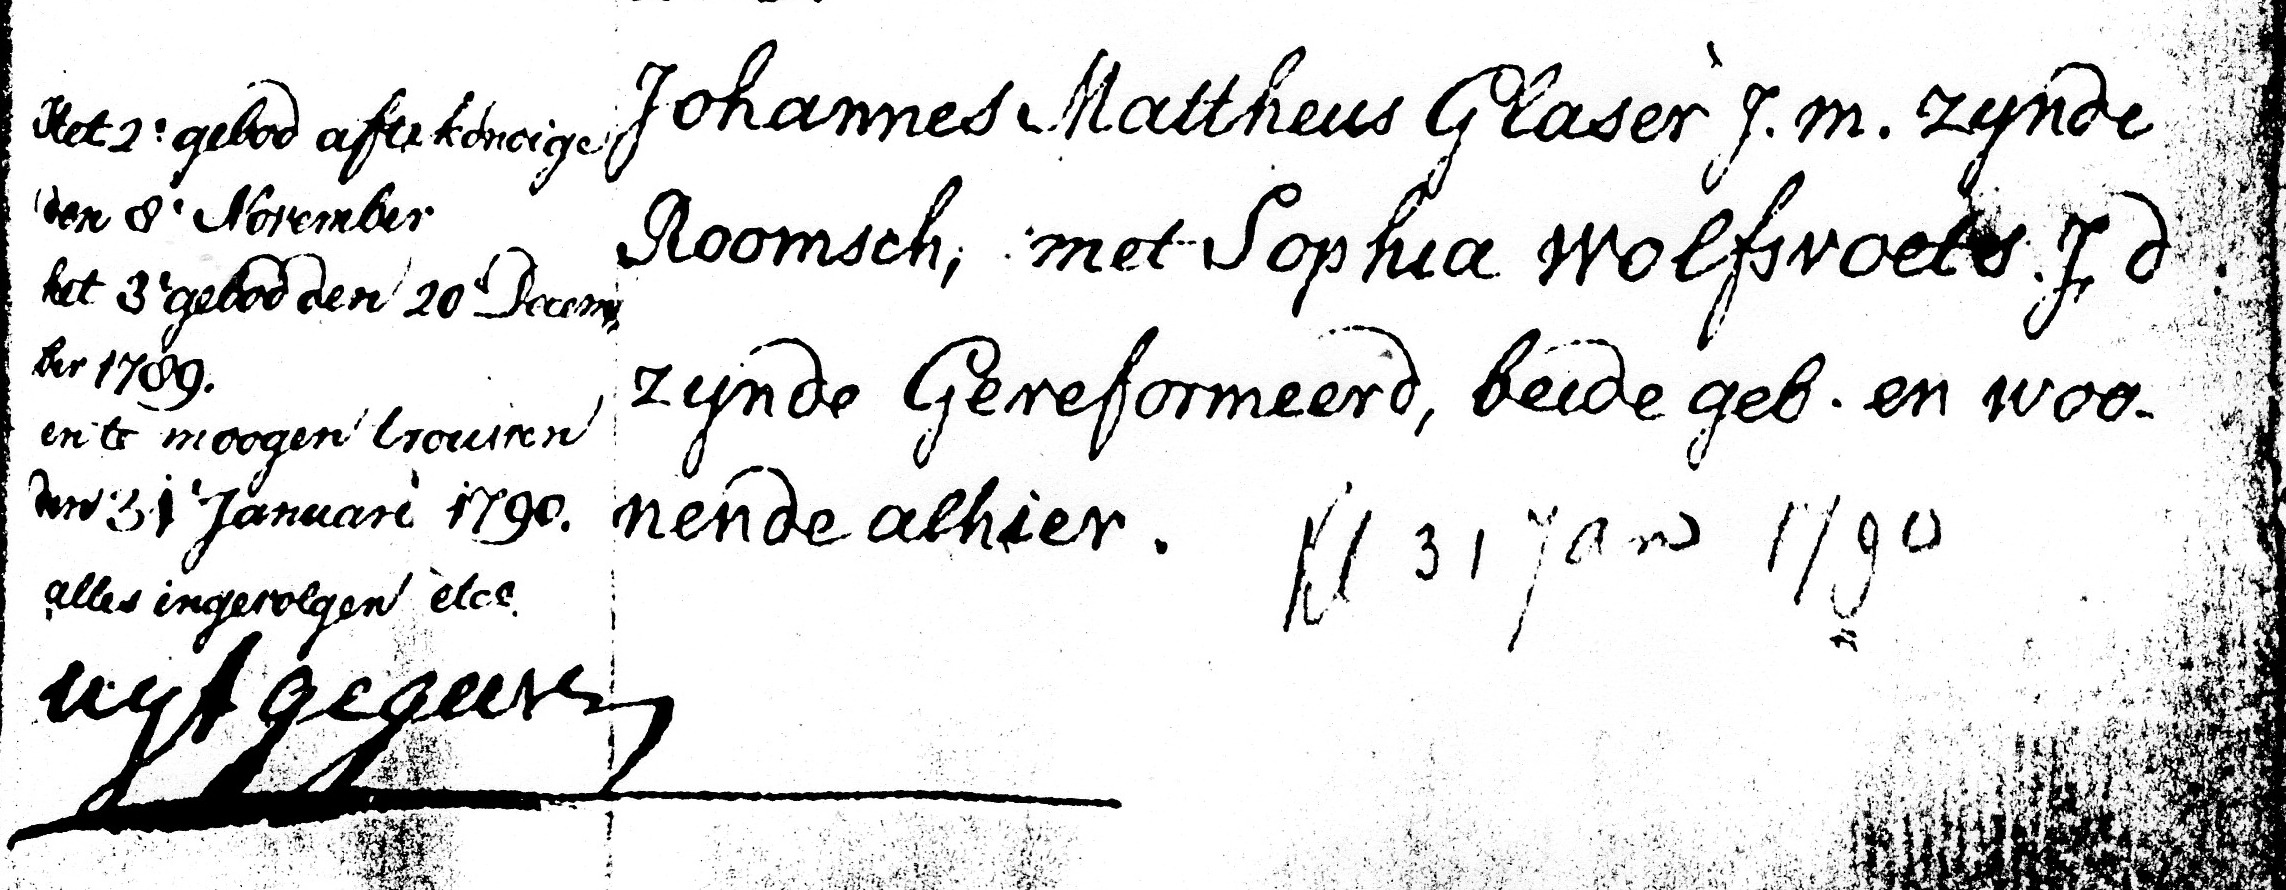 Het 2e gebod afte kondige
den 8e November
het 3e gebod den 20e Decem
ber 1789.
en te moogen trouwen
den 31e Januari 1790.
alles ingevolgen etce
uytgegeeven
Johannes Mattheus Glaser J. m. zynde
Roomsch, met Sophia Wolfsvoets. J. d.
zynde Gereformeerd, beide geb. en woo-
nende alhier.
31 Jan 1790